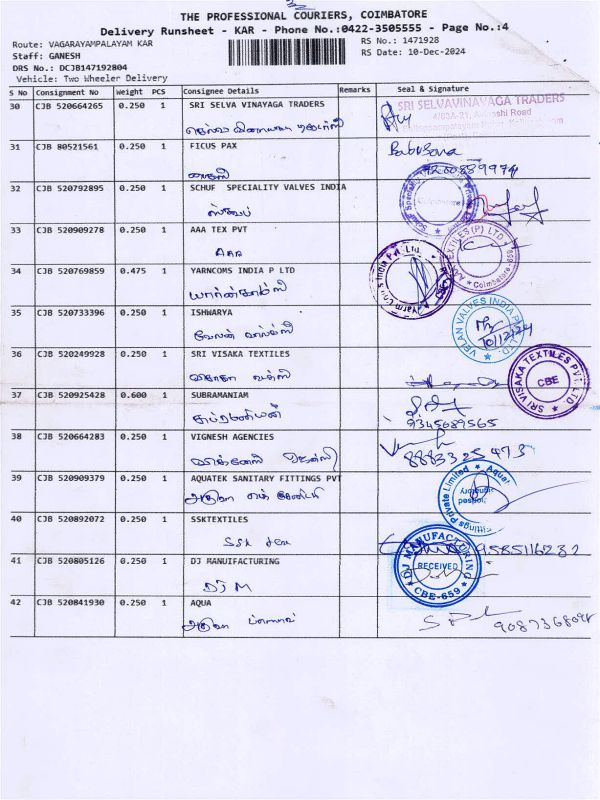 THE PROFESSIONAL COURIERS, COIMBATORE
Delivery Runsheet - KAR - Phone No.:0422-3505555 - Page No.:4
Route: VAGARAYAMPALAYAM KAR
RS No.: 1471928
Staff: GANESH
RS Date: 10-Dec-2024
DRS No.: DCJB147192804
Vehicle: Two Wheeler Delivery
S No Consignment No Weight PCS Consignee Details Remarks Seal & signature
30 CJB 520664265 0.250 1 SRI SELVA VINAYAGA TRADERS
SRI SELVAVINAYAGA TRADERS
31 CJB 80521561 0.250 1 FICUS PAX
32 CJB 520792895 0.250 1 SCHUF SPECIALITY VALVES INDIA
33 CJB 520909278 0.250 1 AAA TEX PVT
AAA
34 CJB 520769859 0.475 1 YARNCOMS INDIA P LTD
யார்ன்காம்ஸ்
35 CJB 520733396 0.250 1 ISHWARYA
VELAN VALVES INDIA P LTD.
10/12/24
36 CJB 520249928 0.250 1 SRI VISAKA TEXTILES
SRI VISAKA TEXTILES PVT LTD
CBE
37 CJB 520925428 0.600 1 SUBRAMANIAM
சுப்ரமணியன்
9345689565
38 CJB 520664283 0.250 1 VIGNESH AGENCIES
8883325473
39 CJB 520909379 0.250 1 AQUATEK SANITARY FITTINGS PVT
40 CJB 520892072 0.250 1 SSKTEXTILES
SSK tex
9585116232
41 CJB 520805126 0.250 1 DJ MANUIFACTURING
DJM
DJ MANUFACTURING
RECEIVED
CBE-659
42 CJB 520841930 0.250 1 AQUA